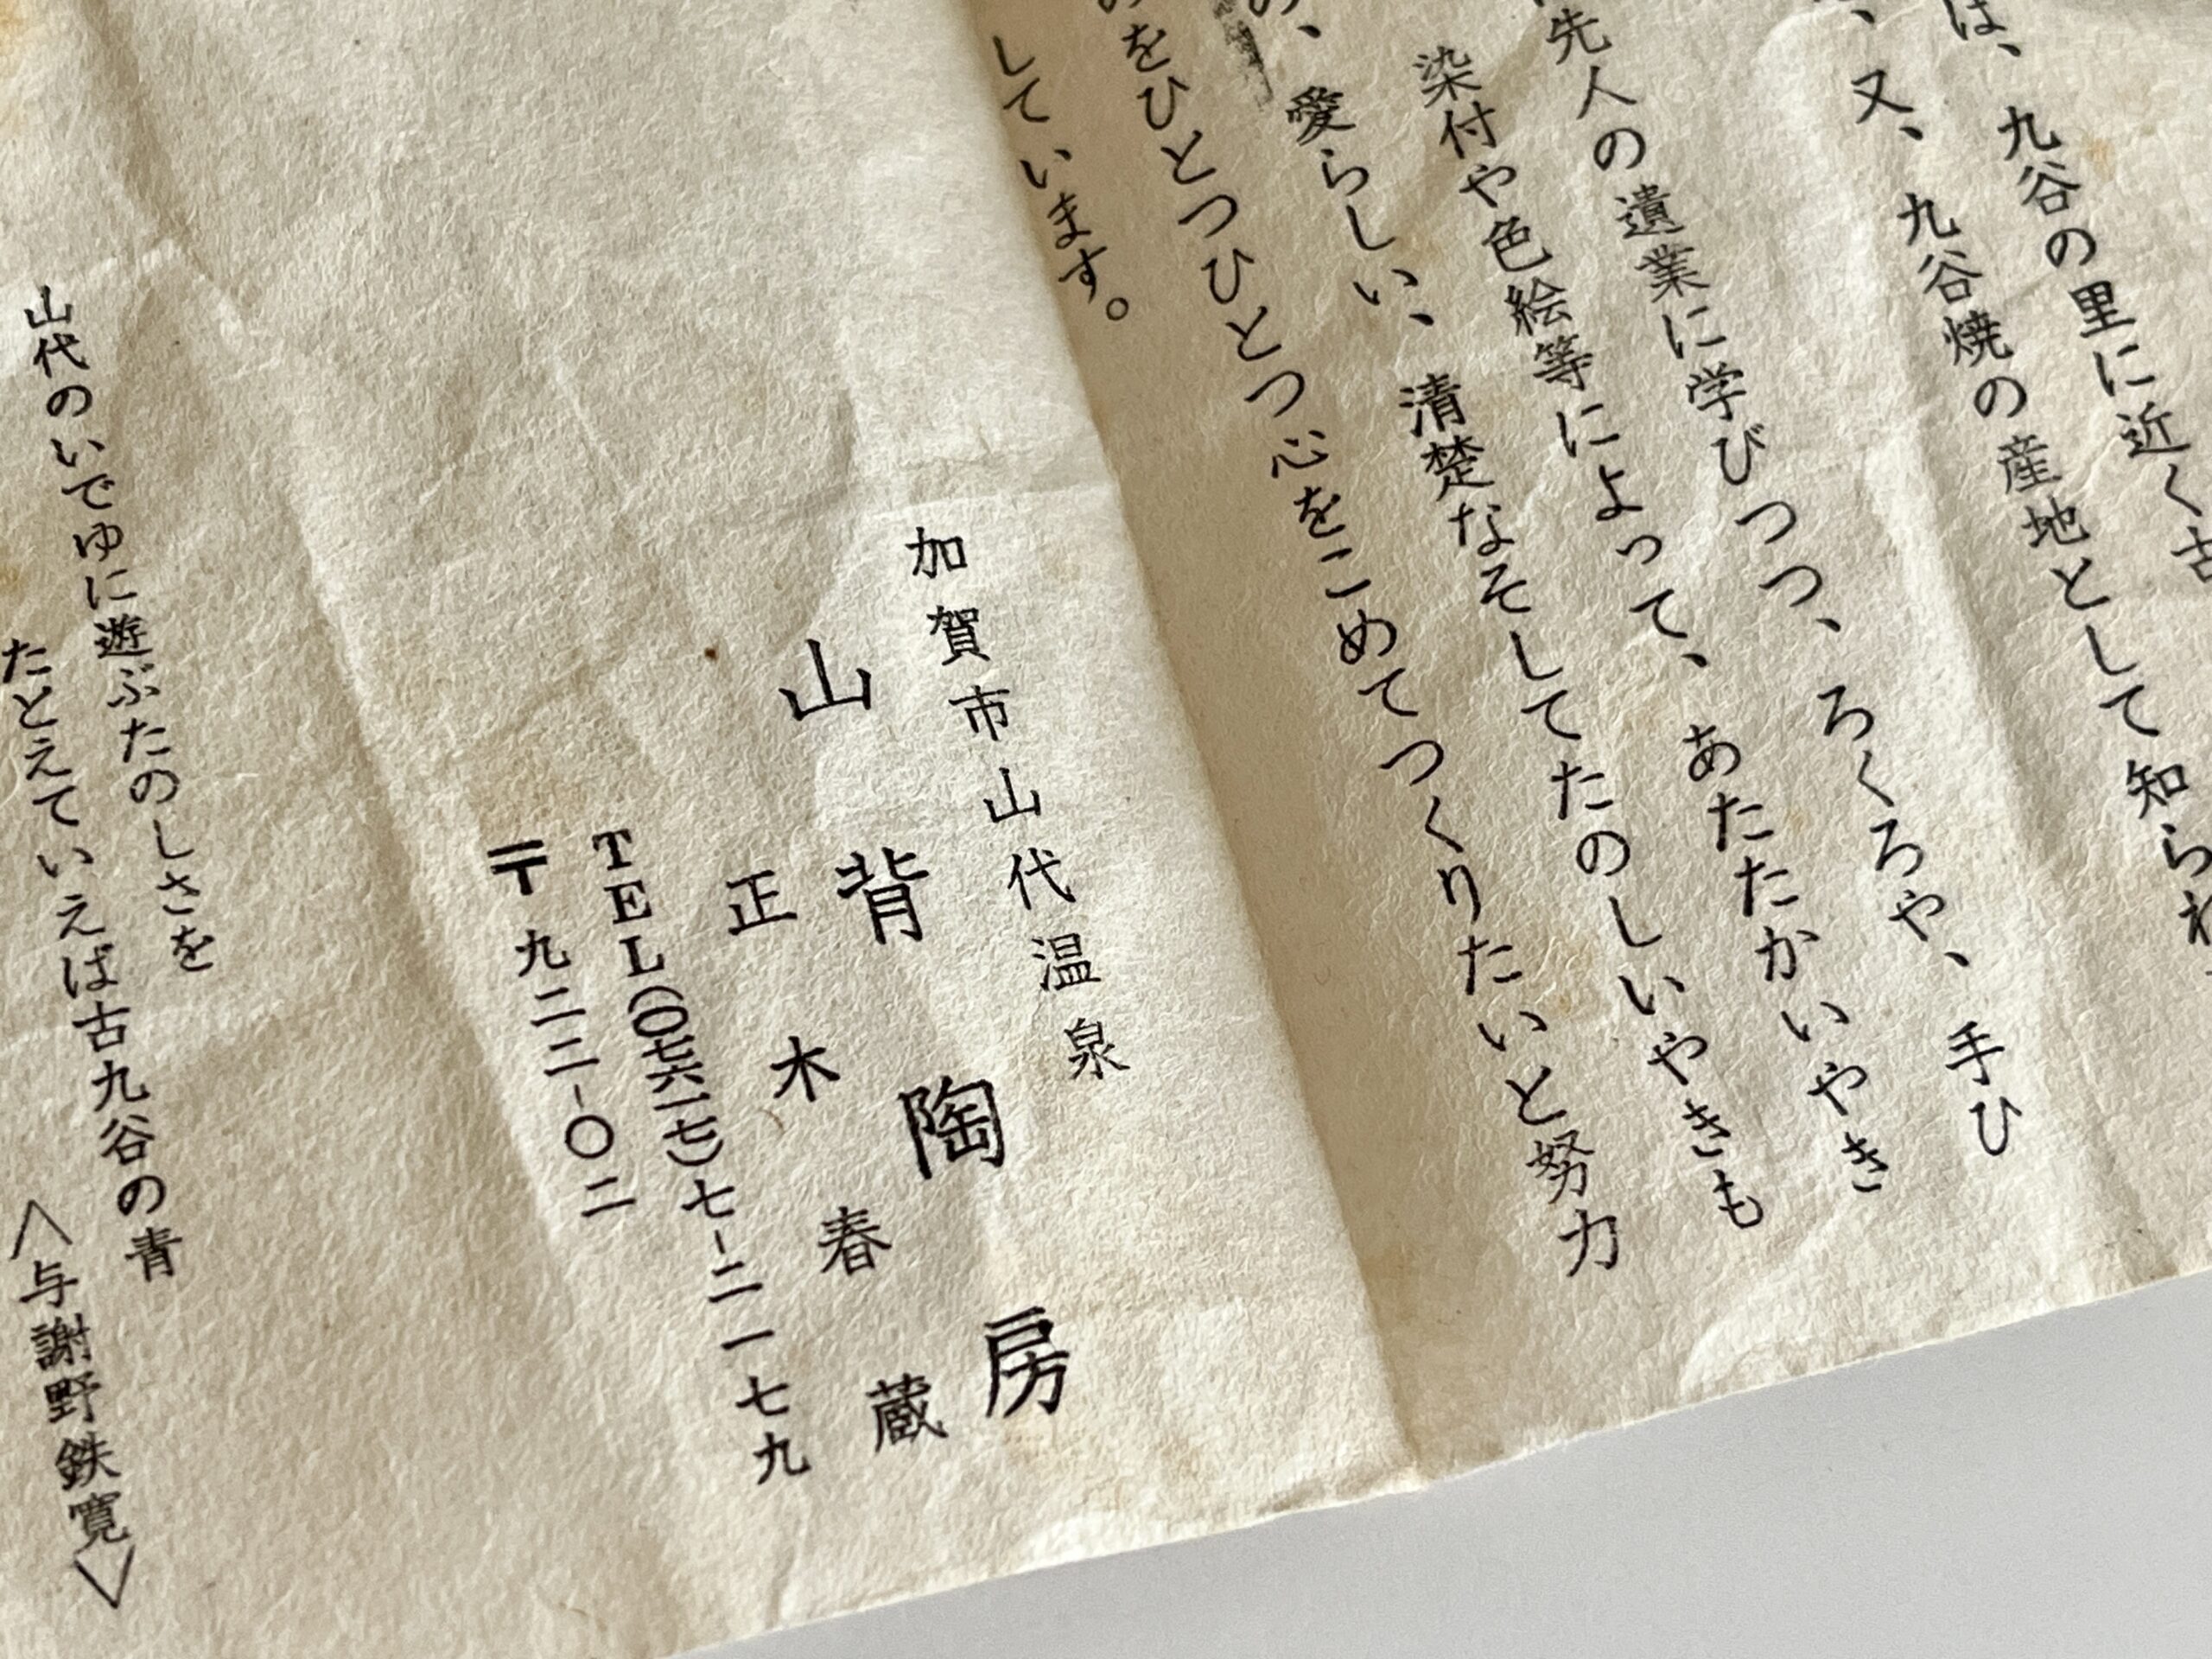 は、九谷の里に近く古
、又、九谷焼の産地として知られ
先人の遺業に学びつつ、ろくろや、手ひ
染付や色絵等によって、あたたかいやき
の、愛らしい、清楚なそしてたのしいやきも
のをひとつひとつ心をこめてつくりたいと努力
しています。
加賀市山代温泉
山背陶房
正木春蔵
TEL(〇七六一七)七-二一七九
〒九二二-〇二
山代のいでゆに遊ぶたのしさを
たとえていえば古九谷の青
〈与謝野鉄寛〉